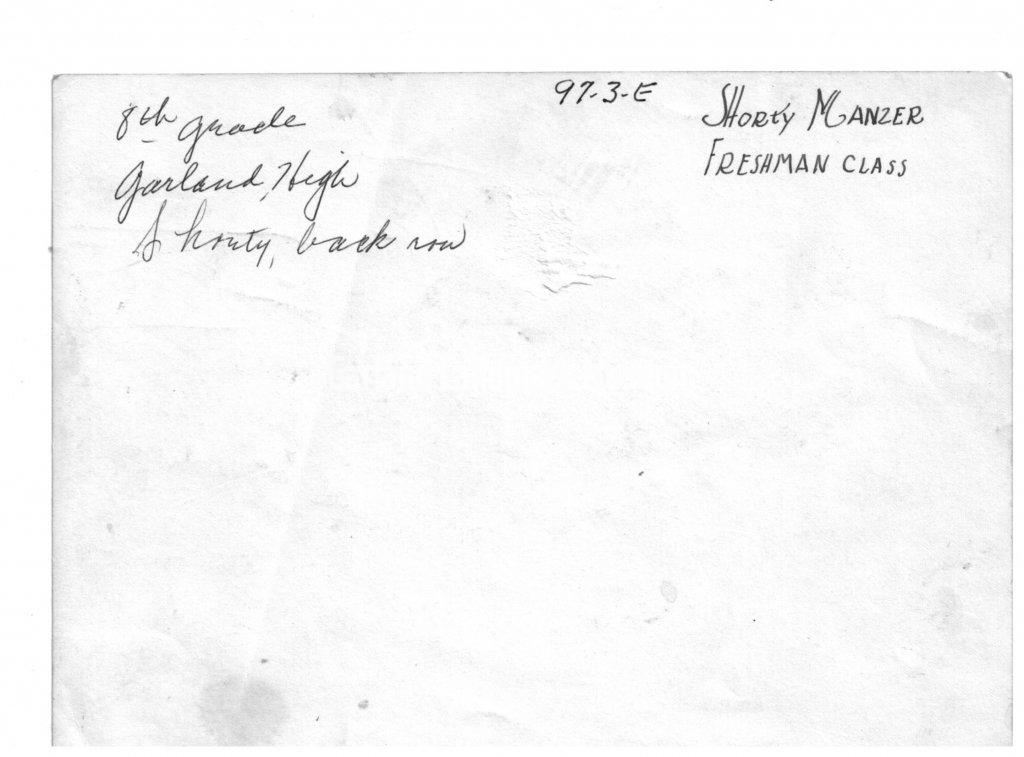 8th grade
Garland, High
Shorty, back row
97-3-E
SHORTY MANZER
FRESHMAN CLASS